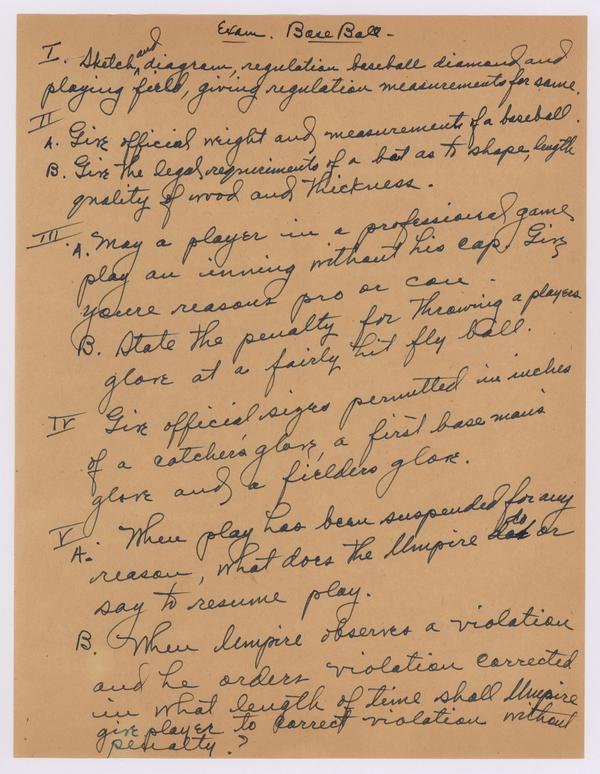 Exam. Base Ball -
I. Sketch and diagram, regulation baseball diamond and
playing field, giving regulation measurements for same.
II
A. Give official weight and measurements of a baseball.
B. Give the legal requirements of a bat as to shape, length
quality of wood and thickness.
III. A. May a player in a professional game
play an inning without his cap. Give
youre reasons pro or con.
B. State the penalty for throwing a players
glove at a fairly hit fly ball.
IV Give official sizes permitted in inches
of a catcher's glove, a first base man's
glove and a fielders glove.
V
A. When play has been suspended for any
reason, what does the Umpire do or
say to resume play.
B. When Umpire observes a violation
and he orders violation corrected
in what length of time shall Umpire
give player to correct violation without
penalty.?